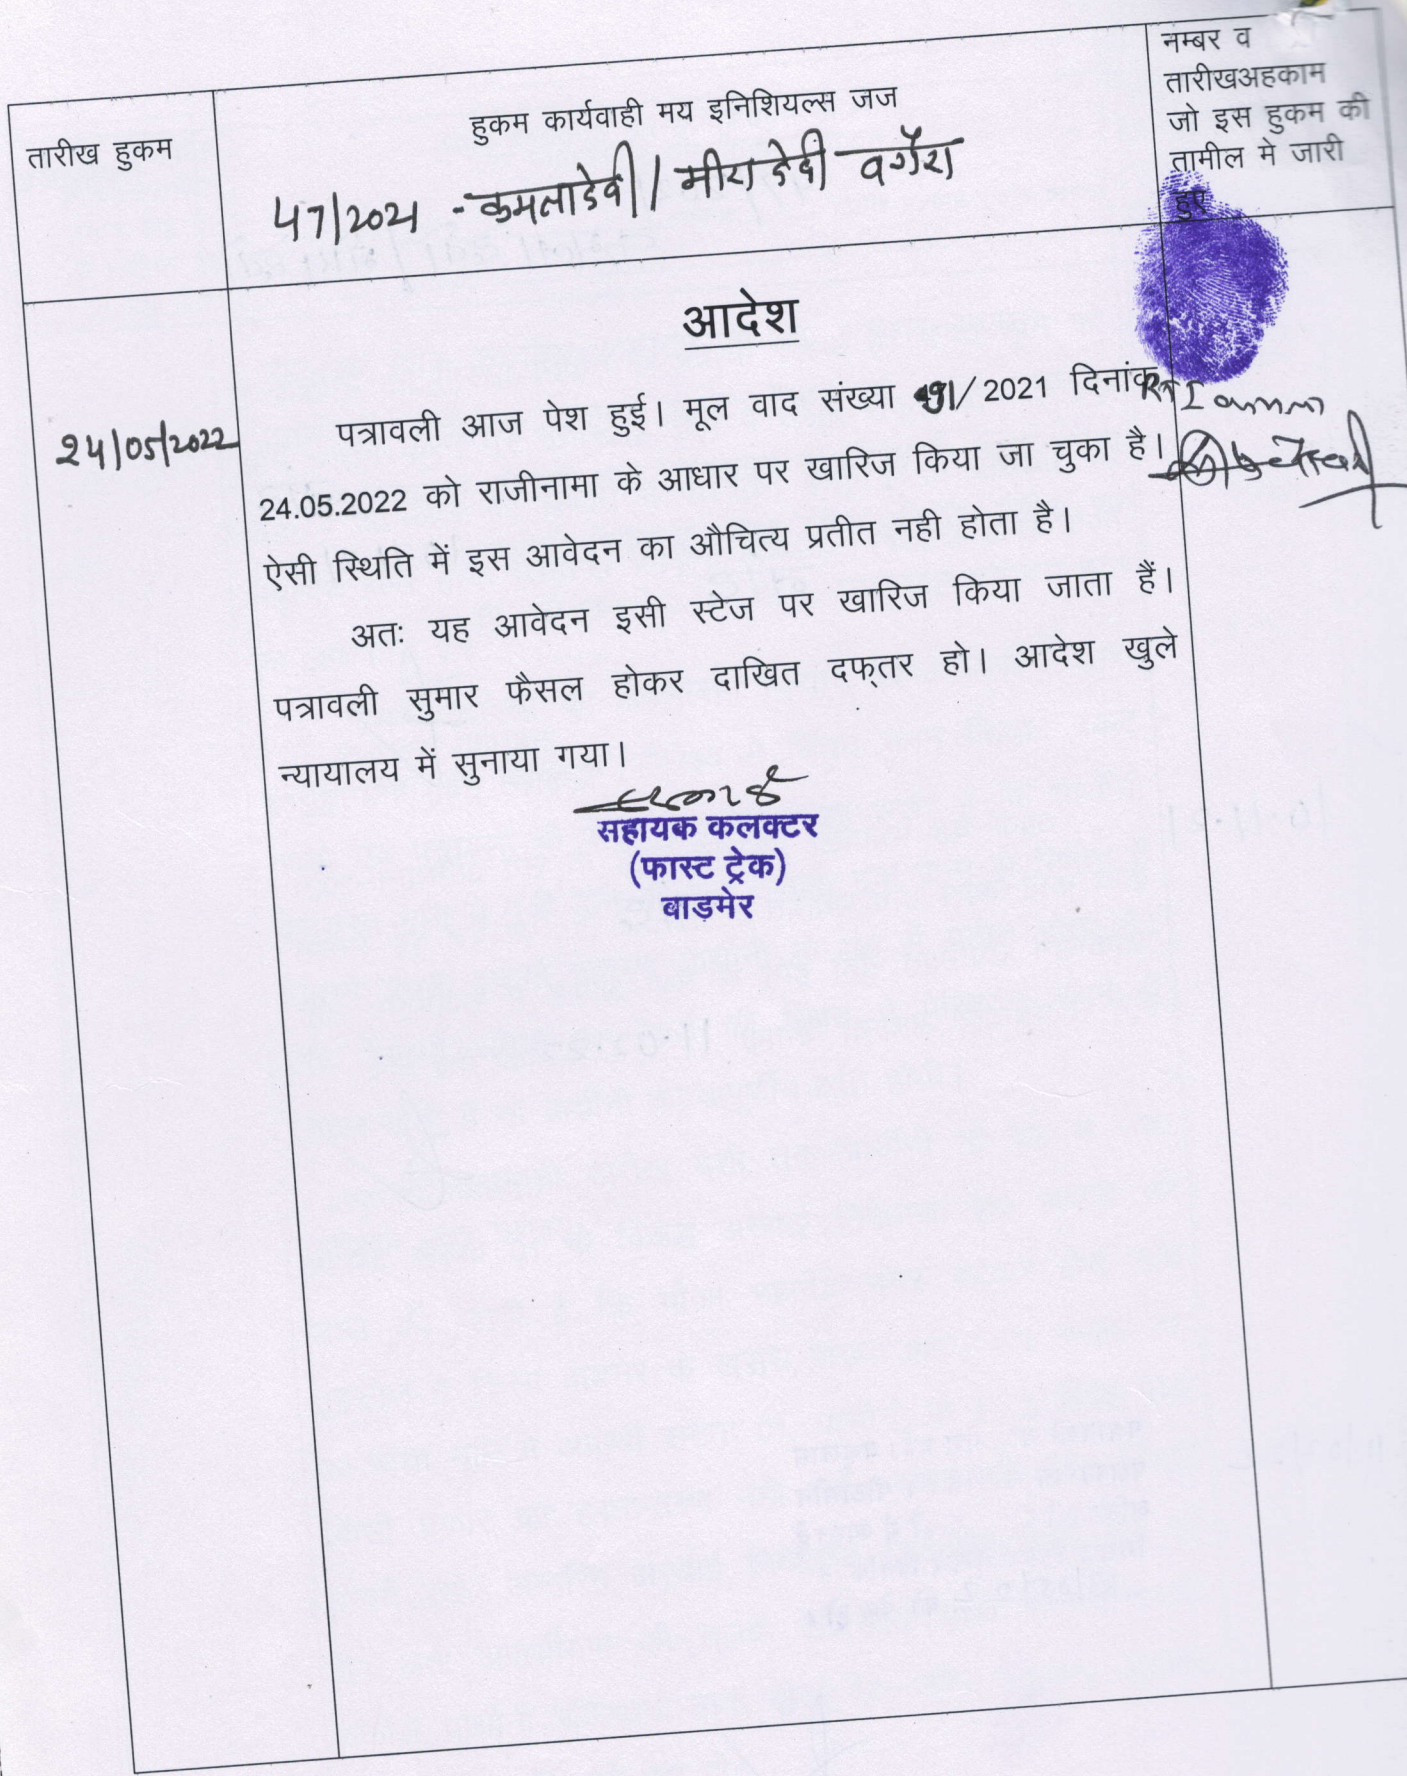 तारीख हुकम
हुकम कार्यवाही मय इनिशियल्स जज
47/2021 - कमलादेवी / मीरा देवी वगैरा
नम्बर व
तारीखअहकाम
जो इस हुकम की
तामील मे जारी
हुए
आदेश
24/05/2022
पत्रावली आज पेश हुई। मूल वाद संख्या /2021 दिनांक
24.05.2022 को राजीनामा के आधार पर खारिज किया जा चुका है।
ऐसी स्थिति में इस आवेदन का औचित्य प्रतीत नही होता है।
अतः यह आवेदन इसी स्टेज पर खारिज किया जाता हैं।
पत्रावली सुमार फैसल होकर दाखित दफ्तर हो। आदेश खुले
न्यायालय में सुनाया गया।
सहायक कलक्टर
(फास्ट ट्रेक)
बाड़मेर